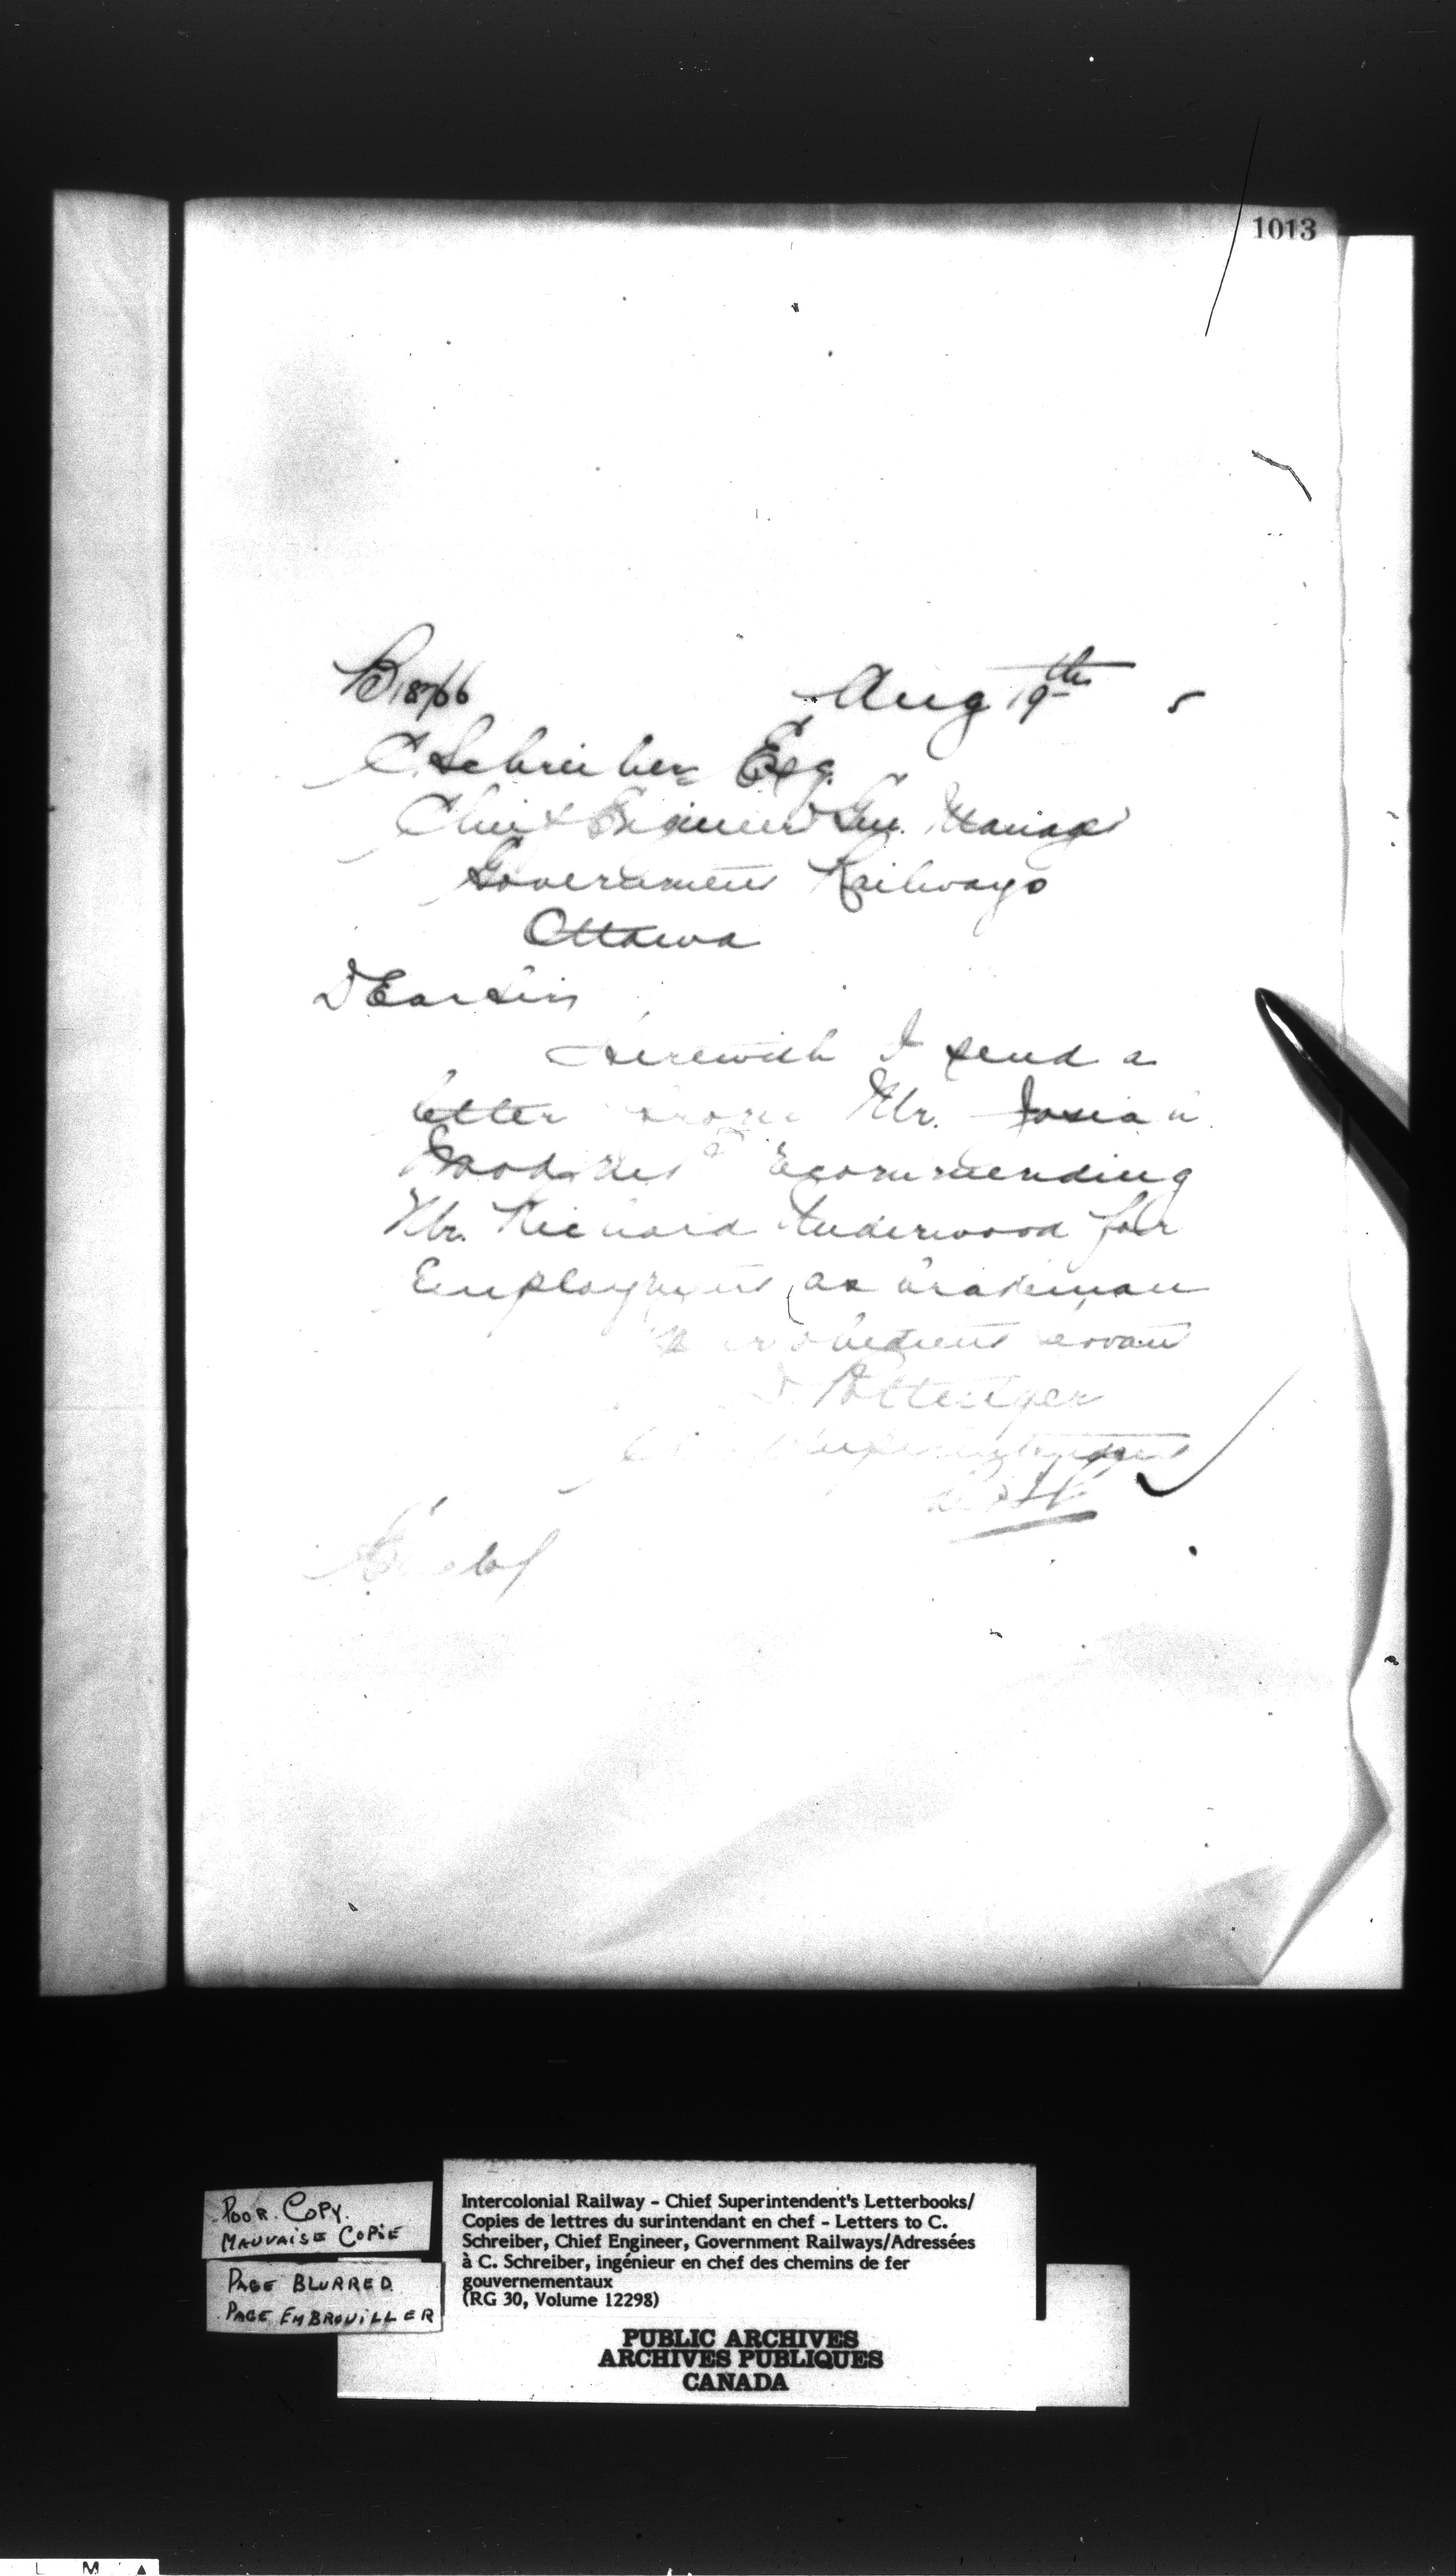 1013
Aug 19th 5
C. Schreiber Esq.
Chief Engineer & Gen. Manager
Government Railways
Ottawa
DEar Sir
Herewith I send a
letter from Mr. Josiah
Wood recommending
Mr. Richard Underwood for
Employment as brakeman
obedient servant
D. Pottinger
Chief Superintendent
POOR COPY.
MAUVAISE COPIE
PAGE BLURRED
PAGE EMBROUILLER
Intercolonial Railway - Chief Superintendent's Letterbooks/
Copies de lettres du surintendant en chef - Letters to C.
Schreiber, Chief Engineer, Government Railways/Adressées
à C. Schreiber, ingénieur en chef des chemins de fer
gouvernementaux
(RG 30, Volume 12298)
PUBLIC ARCHIVES
ARCHIVES PUBLIQUES
CANADA
L M